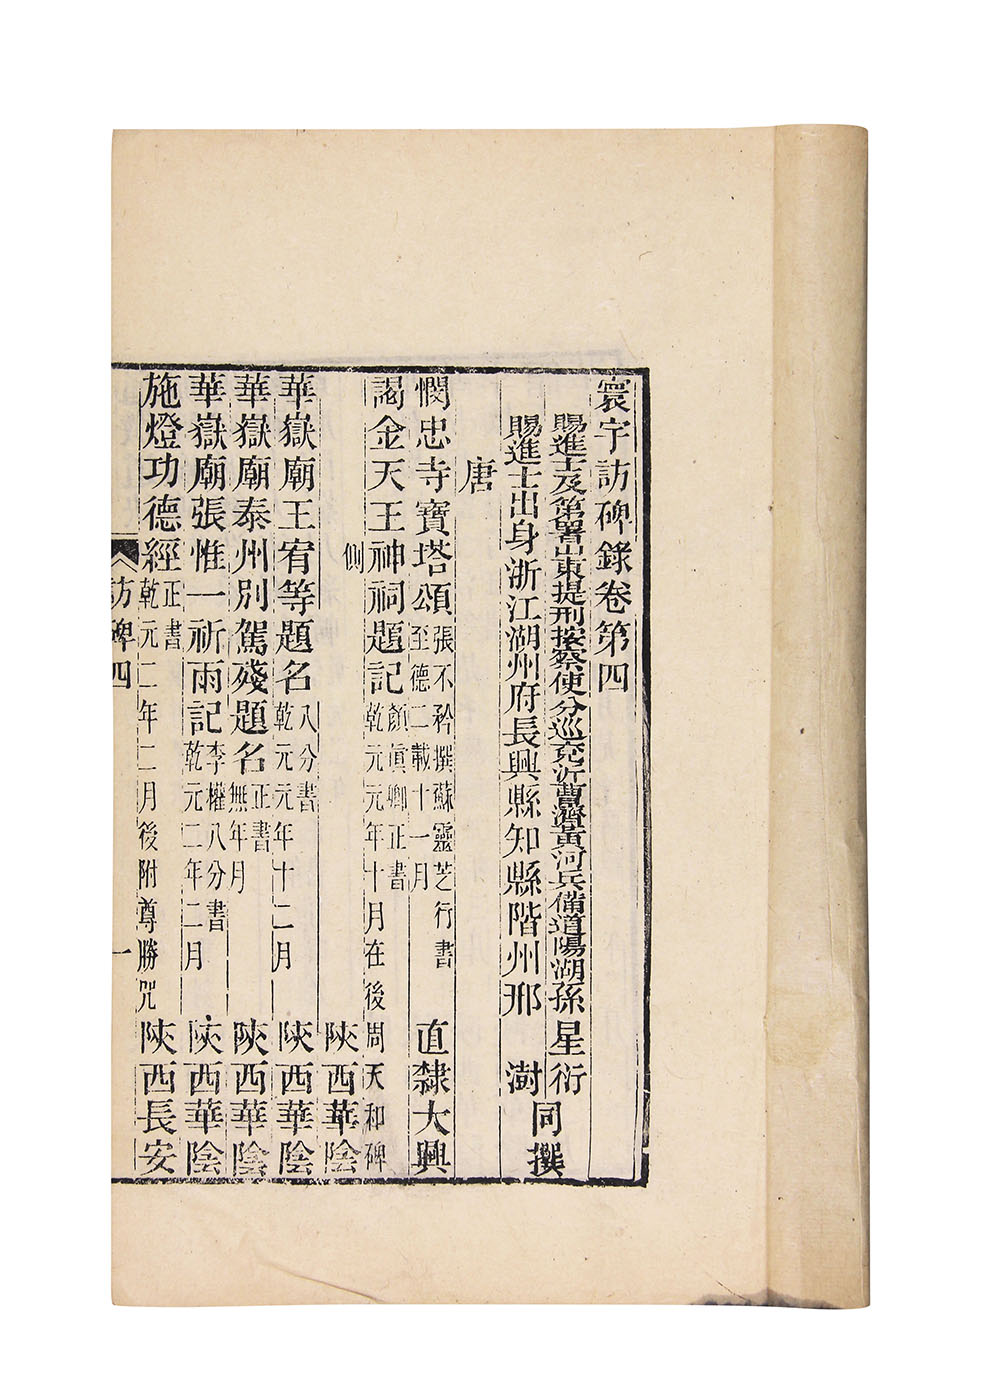 寰宇訪碑錄卷第四
賜進士及第署山東提刑按察使分巡兗沂曹濟黃河兵備道陽湖孫星衍
賜進士出身浙江湖州府長興縣知縣階州邢澍
同撰
唐
憫忠寺寶塔頌張不矜撰蘇靈芝行書至德二載十一月 直隸大興
謁金天王神祠題記顏眞卿正書乾元元年十月在後周天和碑
側 陝西華陰
華嶽廟王宥等題名八分書乾元元年十二月 陝西華陰
華嶽廟泰州別駕殘題名正書無年月 陝西華陰
華嶽廟張惟一祈雨記李權八分書乾元二年二月 陝西華陰
施燈功德經正書乾元二年二月後附尊勝咒 陝西長安
訪碑四 一